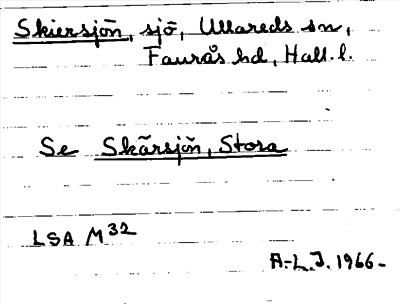 Skiersjön, sjö, Ullareds sn,
Faurås hd, Hall. l.
Se Skärsjön, Stora
LSA M32
A.-L. J. 1966-